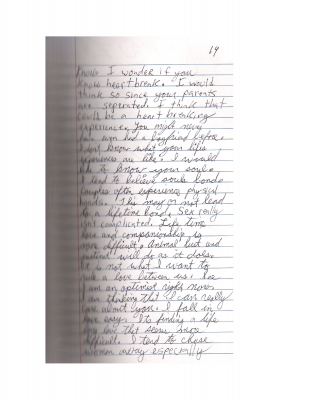 19
know I wonder if you
know heartbreak. I would
think so since your parents
are seperated. I think that
could be a heart breaking
experience. You might never
have even had a boyfriend before.
I dont know what your lifes
experiences are like. I would
like to know your soul.
I tend to believe souls bond.
Couples often experience physical
bonds. This may or not lead
to a lifetime bond. Sex really
isnt complicated. Life time
love and companionship is
more difficult. Animal lust and
will do as it does.
It is not what I want to
a love between us.
I am an optimist right now.
I am thinking that I can really
care about you. I fall in
love easy. Its finding a life
long love that seems more
difficult. I tend to chase
women away especially